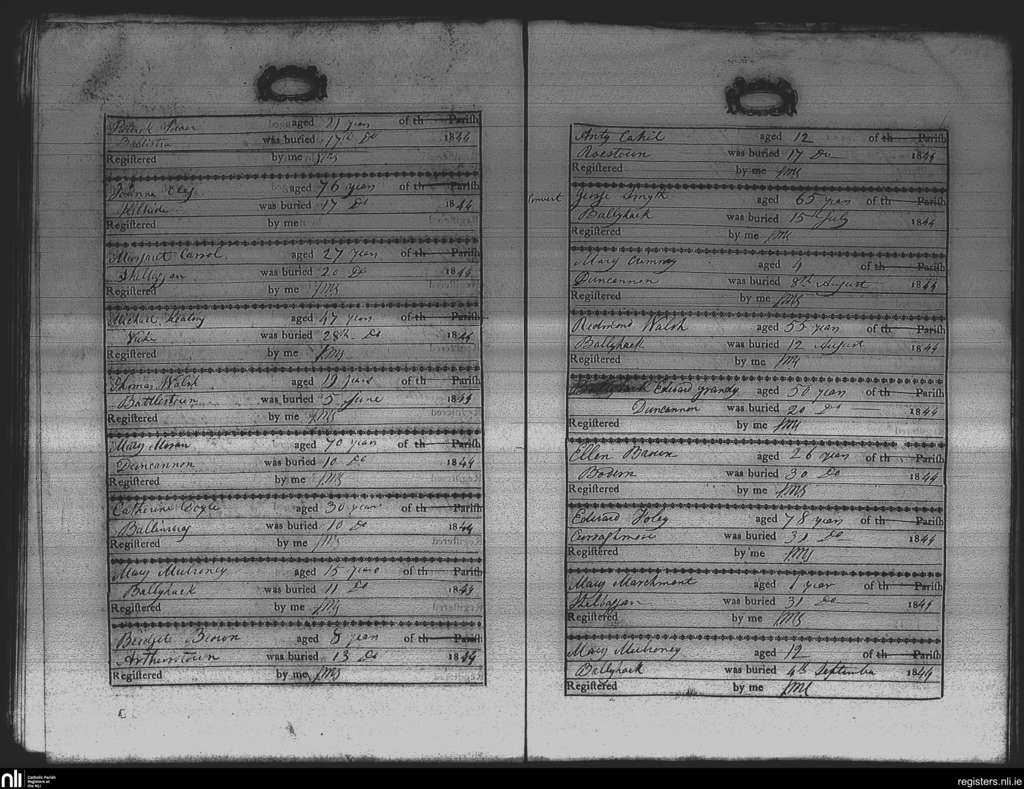 Patrick aged 21 years of th Parish
was buried 17th Do 1844
Registered by me
Joanna aged 76 years of th Parish
Kilbride was buried 17 Do 1844
Registered by me
Margaret Carrol aged 27 years of th Parish
Shelbaggan was buried 20 Do 1844
Registered by me
Michael Keating aged 47 years of th Parish
was buried 28th Do 1844
Registered by me
Thomas Walsh aged 19 years of th Parish
Battlestown was buried 5 June 1844
Registered by me
Mary Moran aged 70 years of th Parish
Duncannon was buried 10 Do 1844
Registered by me
Catherine Doyle aged 30 years of th Parish
was buried 10 Do 1844
Registered by me
Mary Mulroney aged 15 years of th Parish
Ballyhack was buried 11 Do 1844
Registered by me
Bridget Brown aged 8 years of th Parish
Arthurstown was buried 13 Do 1844
Registered by me
Anty Cahil aged 12 of th Parish
Roestown was buried 17 Do 1844
Registered by me
Convert George Smyth aged 65 years of th Parish
Ballyhack was buried 15th July 1844
Registered by me
Mary aged 4 of th Parish
Duncannon was buried 8th August 1844
Registered by me
Redmond Walsh aged 55 years of th Parish
Ballyhack was buried 12 August 1844
Registered by me
Edward Grandy aged 50 years of th Parish
Duncannon was buried 20 Do 1844
Registered by me
Ellen aged 26 years of th Parish
was buried 30 Do 1844
Registered by me
Edward Foley aged 78 years of th Parish
Curraghmore was buried 31 Do 1844
Registered by me
Mary Marchmont aged 1 year of th Parish
Shelbaggan was buried 31 Do 1844
Registered by me
Mary Mulroney aged 12 of th Parish
Ballyhack was buried 4th September 1844
Registered by me
nli Catholic Parish Registers at the NLI
registers.nli.ie